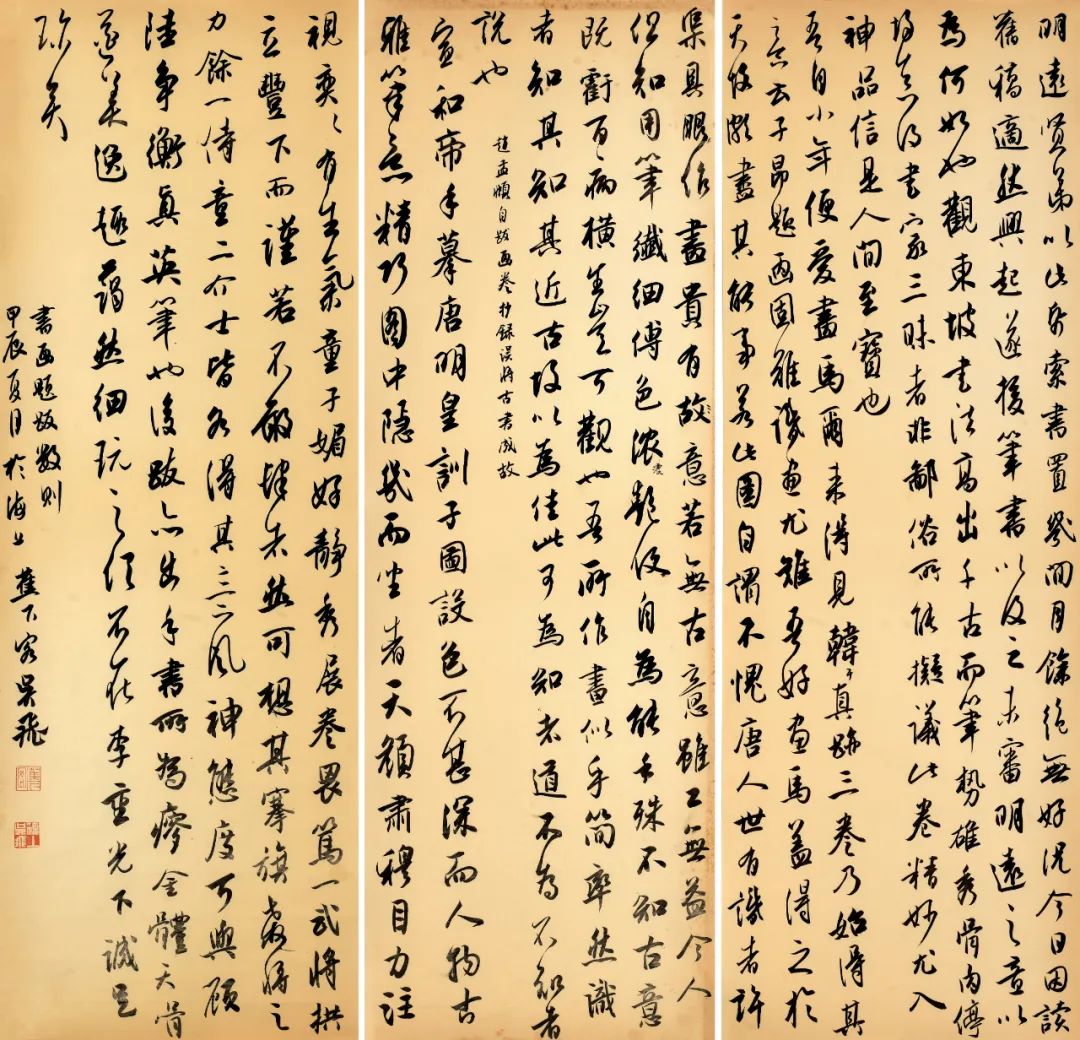 明遠贤弟以此卷索書置几間月餘絶無好況今日因讀
舊稿適然興起遂援筆書以復之未審明遠之意以
為何如也觀東坡書法高出千古而筆勢雄秀骨肉停
均真得書家三昧者非鄙俗所能擬議此卷精妙尤入
神品信是人間至寶也
吾自小年便愛畫馬爾來得見韓幹真跡三卷乃始得其
意云子昂題画固難識画尤難吾好画馬蓋得之於
天故頗盡其能事若此圖自謂不愧唐人世有識者許
集具眼作畫貴有故意若無古意雖工無益今人
但知用筆纖細傅色濃艷便自為能手殊不知古意
既虧百病橫生豈可觀也吾所作畫似乎簡率然識
者知其知其近古故以為佳此可為知者道不為不知者
說也
趙孟頫自跋画卷抄録误將古書成故
宣和帝手摹唐明皇訓子圖設色不甚深而人物古
雅筆意精巧圖中隱几而坐者天顏肅穆目力註
視奕々有生氣童子媚好靜秀展卷畏篤一武將拱
立豐下而謹若不敵肆未然可想其搴旗斬將之
力餘一侍童二介士皆各得其三二風神態度可與顧
陸爭衡真英筆也後跋亦出手書所為瘦金體天骨
遒美逸趣藹然細玩之須不在李重光下誠足
珍矣
書画題跋數則
甲辰夏月於海上 蕉下客吳飛